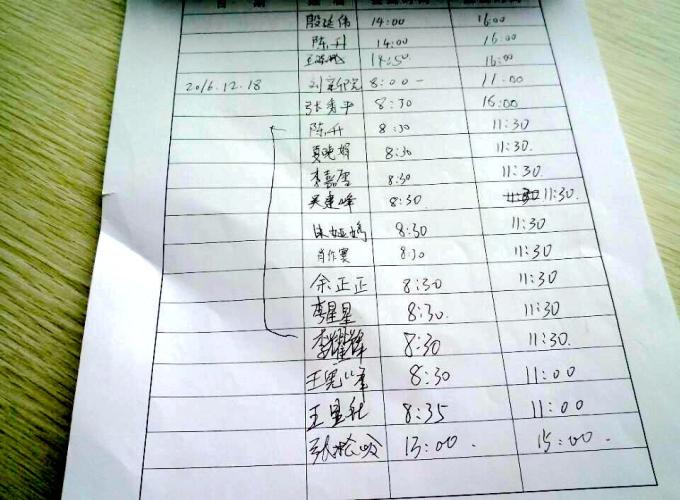 殷延伟 14:00 16:00
陈升 14:00 16:00
14:50 16:00
2016.12.18 8:00- 11:00
张秀平 8:30 16:00
陈升 8:30 11:30
夏晓娟 8:30 11:30.
李嘉 8:30 11:30.
吴建峰 8:30. 11:30 11:30.
8:30 11:30
肖作赛 8:30 11:30.
余正正 8:30 11:30
李星星 8:30. 11:30
李耀锋 8:30 11:30.
王宪峰 8:30 11:00
王星 8:35 11:00
张 13:00. 15:00.